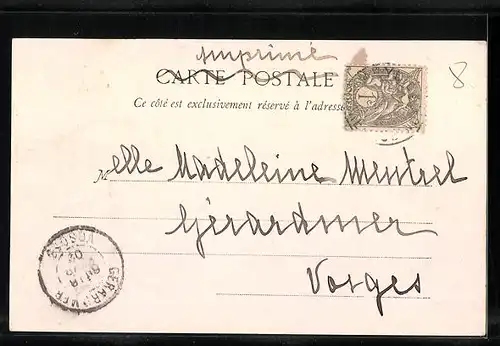 imprimé
CARTE POSTALE
Ce côté est exclusivement réservé à l'adresse
Melle Madeleine Mentrel
Gérardmer
Vosges
8
1c
GERARDMER
VOSGES